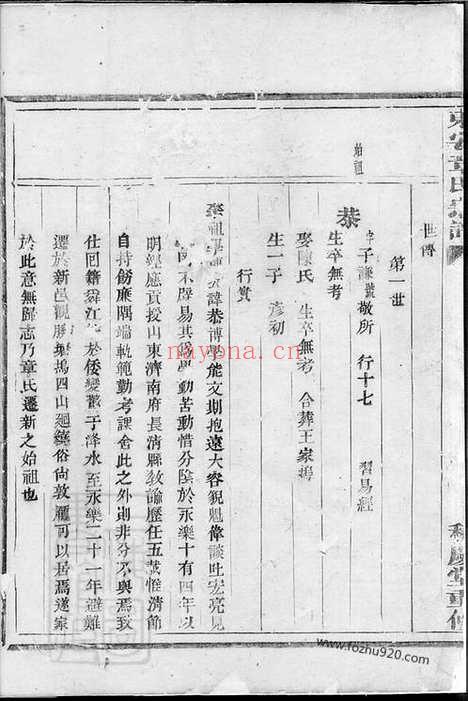 世傳
第一世
始祖
恭
字子謙號敬所 行十七 習易經
生卒無考
娶陳氏 生卒無考 合葬王家塢
生一子 彥初
行實
諱恭博學能文期抱遠大容貌魁偉談吐宏亮見
不辱易其 動苦動惜分陰於永樂十有四年以
明經應貢授山東濟南府長清縣教諭歷任五載惟清節
自持飭廉隅端軌範勤考課舍此之外則非分不與焉致
仕回籍舜江 於倭變 于澤水至永樂二十一年避難
遷於新邑觀勝 塢四山廻繞俗尚敦龐可以居焉遂家
於此意無歸志乃章氏遷新之始祖也
章氏
慶堂重修
nayona.cn
www.fozhu920.com